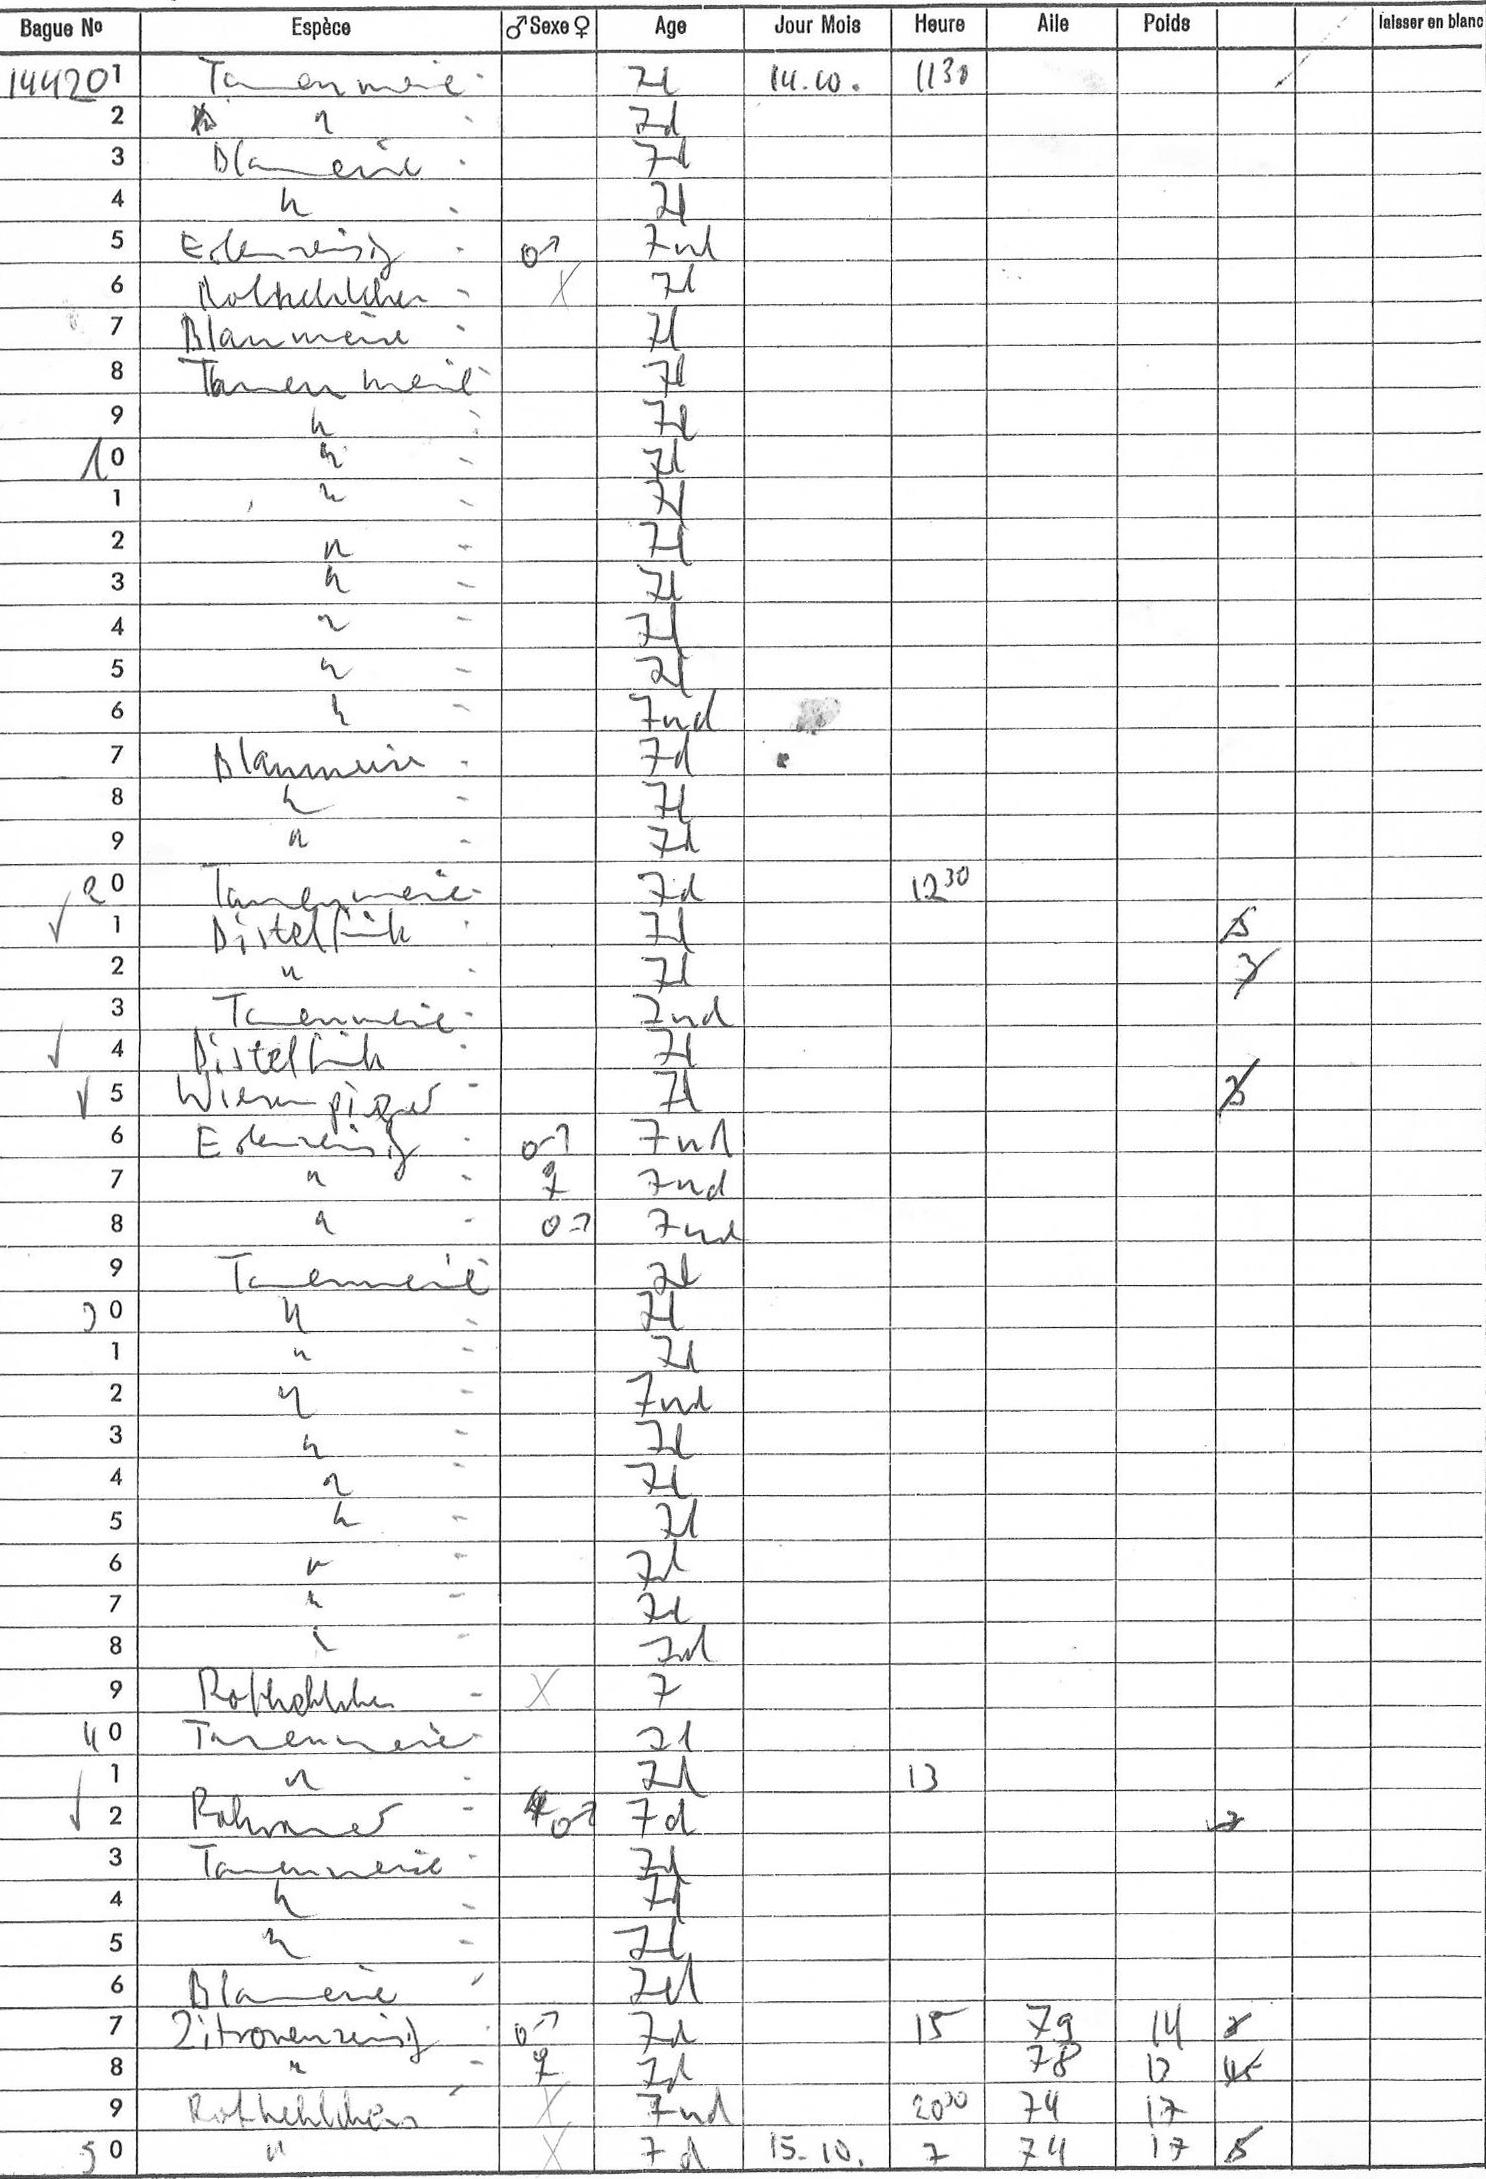 Bague Nº Espèce ♂ Sexe ♀ Age Jour Mois Heure Aile Poids laisser en blanc
144201 Tannenmeise 7d 14.10. 11 30
2 " 7d
3 Blaumeise 7d
4 " 7d
5 Erlenzeisig ♂ 7nd
6 Rotkehlchen X 7d
7 Blaumeise 7d
8 Tannenmeise 7d
9 " 7d
10 " 7d
1 " 7d
2 " 7d
3 " 7d
4 " 7d
5 " 7d
6 " 7nd
7 Blaumeise 7d
8 " 7d
9 " 7d
20 Tannenmeise 7d 12 30
✓ 1 Distelfink 7d
2 " 7d
3 Tannenmeise 7nd
✓ 4 Distelfink 7d
✓ 5 Wiesenpieper 7d
6 Erlenzeisig ♂ 7nd
7 " ♀ 7nd
8 " ♂ 7nd
9 Tannenmeise 7d
30 " 7d
1 " 7d
2 " 7nd
3 " 7d
4 " 7d
5 " 7d
6 " 7d
7 " 7d
8 " 7d
9 Rotkehlchen X 7
40 Tannenmeise 7d
1 " 7d 13
✓ 2 Rohrammer ♂ 7d
3 Tannenmeise 7d
4 " 7d
5 " 7d
6 Blaumeise 7d
7 Zitronenzeisig ♂ 7d 15 79 14
8 " ♀ 7d 78 13
9 Rotkehlchen X 7nd 20 30 74 17
50 " X 7d 15.10. 7 74 17